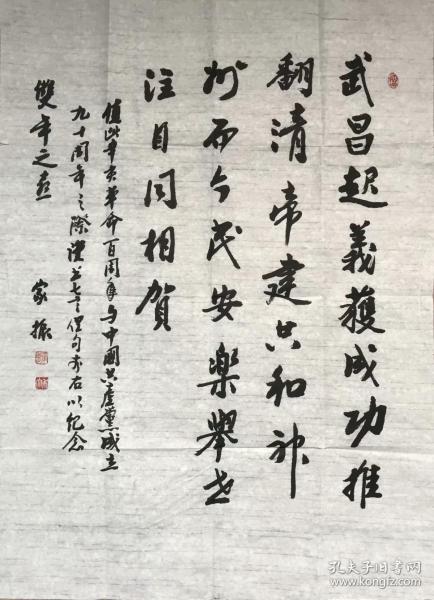 武昌起義獲成功推
翻清帝建共和神
州而今民安樂舉世
注目同相賀
值此辛亥革命百周年与中國共產黨成立
九十周年之際謹書七言俚句於右以紀念
雙年之喜
家振
孔夫子旧书网
www.kongfz.com